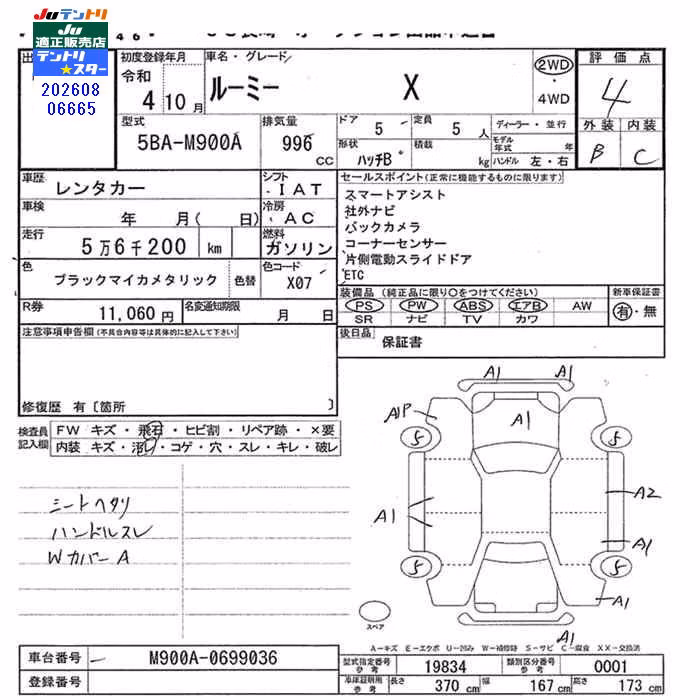 Juテントリ
Ju
適正販売店
テントリ
スター
202608
06665
初度登録年月
令和
4 10月
車名・グレード
ルーミー X
2WD
・
4WD
評価点
4
外装 内装
B C
型式
5BA-M900A
排気量
996
CC
ドア
5
定員
5人
形状
ハッチB
積載
kg
ディーラー・並行
モデル年式 年
ハンドル 左・右
車歴
レンタカー
シフト
IAT
車検
年 月( 日)
冷房
AC
走行
5万6千200 km
燃料
ガソリン
色
ブラックマイカメタリック
色替
色コード
X07
R券
11,060円
名変通知期限
月 日
セールスポイント(正常に機能するものに限ります)
スマートアシスト
社外ナビ
バックカメラ
コーナーセンサー
片側電動スライドドア
ETC
装備品(純正品に限り○をつけてください)
PS PW ABS エアB AW
SR ナビ TV カワ
新車保証書
有・無
後日品
保証書
注意事項申告欄(不具合内容等は具体的に記入して下さい)
修復歴 有〔箇所 〕
検査員
記入欄
FW キズ・飛石・ヒビ割・リペア跡・×要
内装 キズ・汚レ・コゲ・穴・スレ・キレ・破レ
シートヘタリ
ハンドルスレ
Wカバー A
A1 A1
A1P
A1
5 5
A1
A2
A1
5 5
A1
A1
スペア
A-キズ E-エクボ U-凹み W-補修跡 S-サビ C-腐食 XX-交換済
車台番号
M900A-0699036
登録番号
型式指定番号
参考
19834
類別区分番号
参考
0001
車庫証明用
参考
長さ 370 cm
幅 167 cm
高さ 173 cm